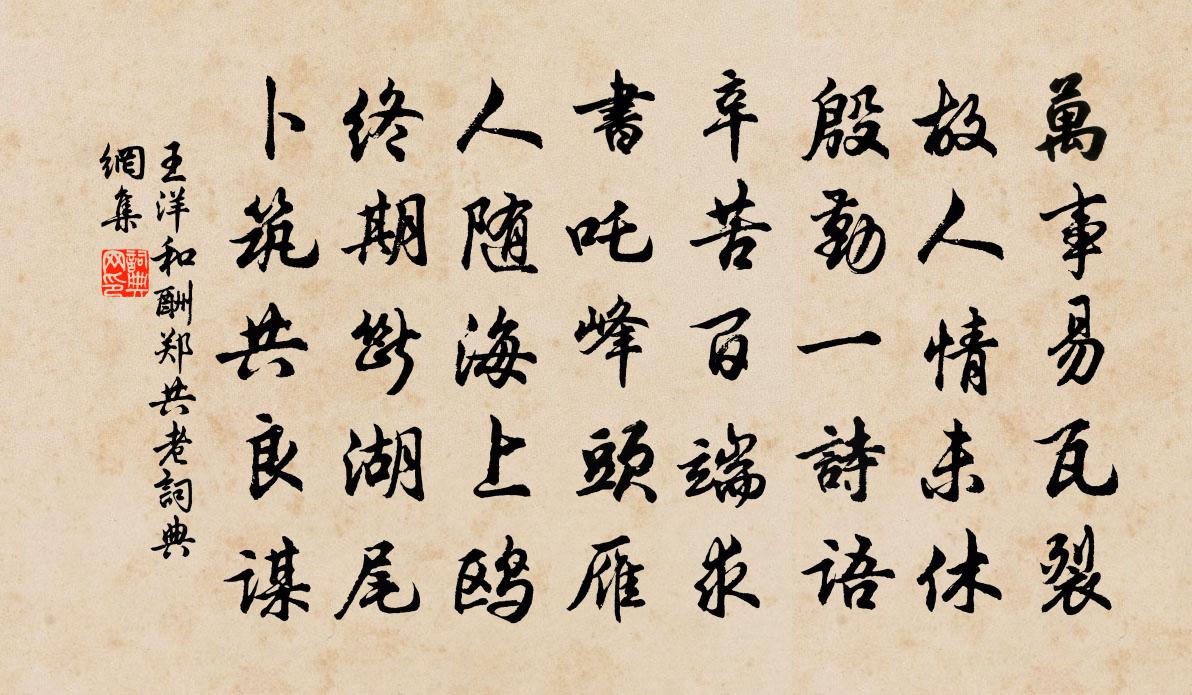 萬事易瓦裂
故人情未休
殷勤一詩語
辛苦百端求
書吒峰頭雁
人随海上鸥
终期斷湖尾
卜筑共良谋
王洋和酬郑共老詞典
網集
詞典
网印